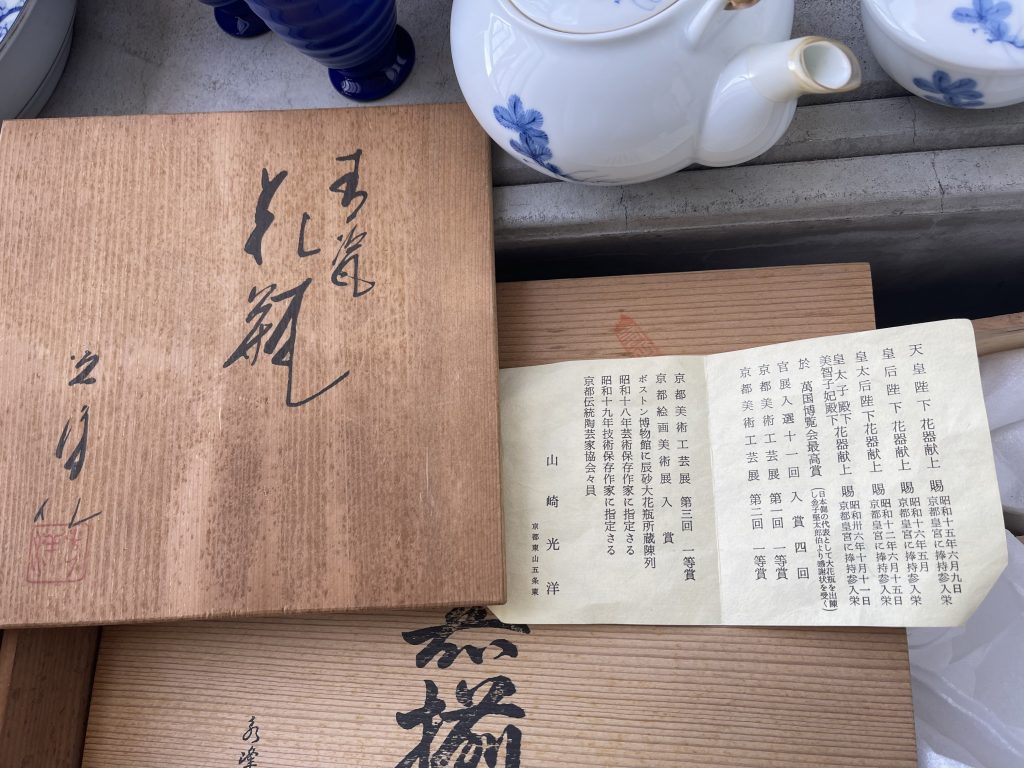 青瓷
花瓶
光洋作
天皇陛下花器献上 賜 昭和十五年六月九日 京都皇宮に捧持参入栄
皇后陛下花器献上 賜 昭和十六年五月 京都皇宮に捧持参入栄
皇太后陛下花器献上 賜 昭和十二年六月十五日 京都皇宮に捧持参入栄
皇太子殿下 美智子妃殿下 花器献上 賜 昭和卅六年十月十一日 京都皇宮に捧持参入栄
於 萬国博覧会最高賞 (日本側の代表として大花瓶を出陳し金子堅太郎伯より感謝状を受く)
官展入選十一回 入賞四回
京都美術工芸展 第一回 一等賞
京都美術工芸展 第二回 一等賞
京都美術工芸展 第三回 一等賞
京都絵画美術展 入賞
ボストン博物館に辰砂大花瓶所蔵陳列
昭和十八年芸術保存作家に指定さる
昭和十九年技術保存作家に指定さる
京都伝統陶芸家協会々員
山崎光洋
京都東山五条東
揃
秀峰